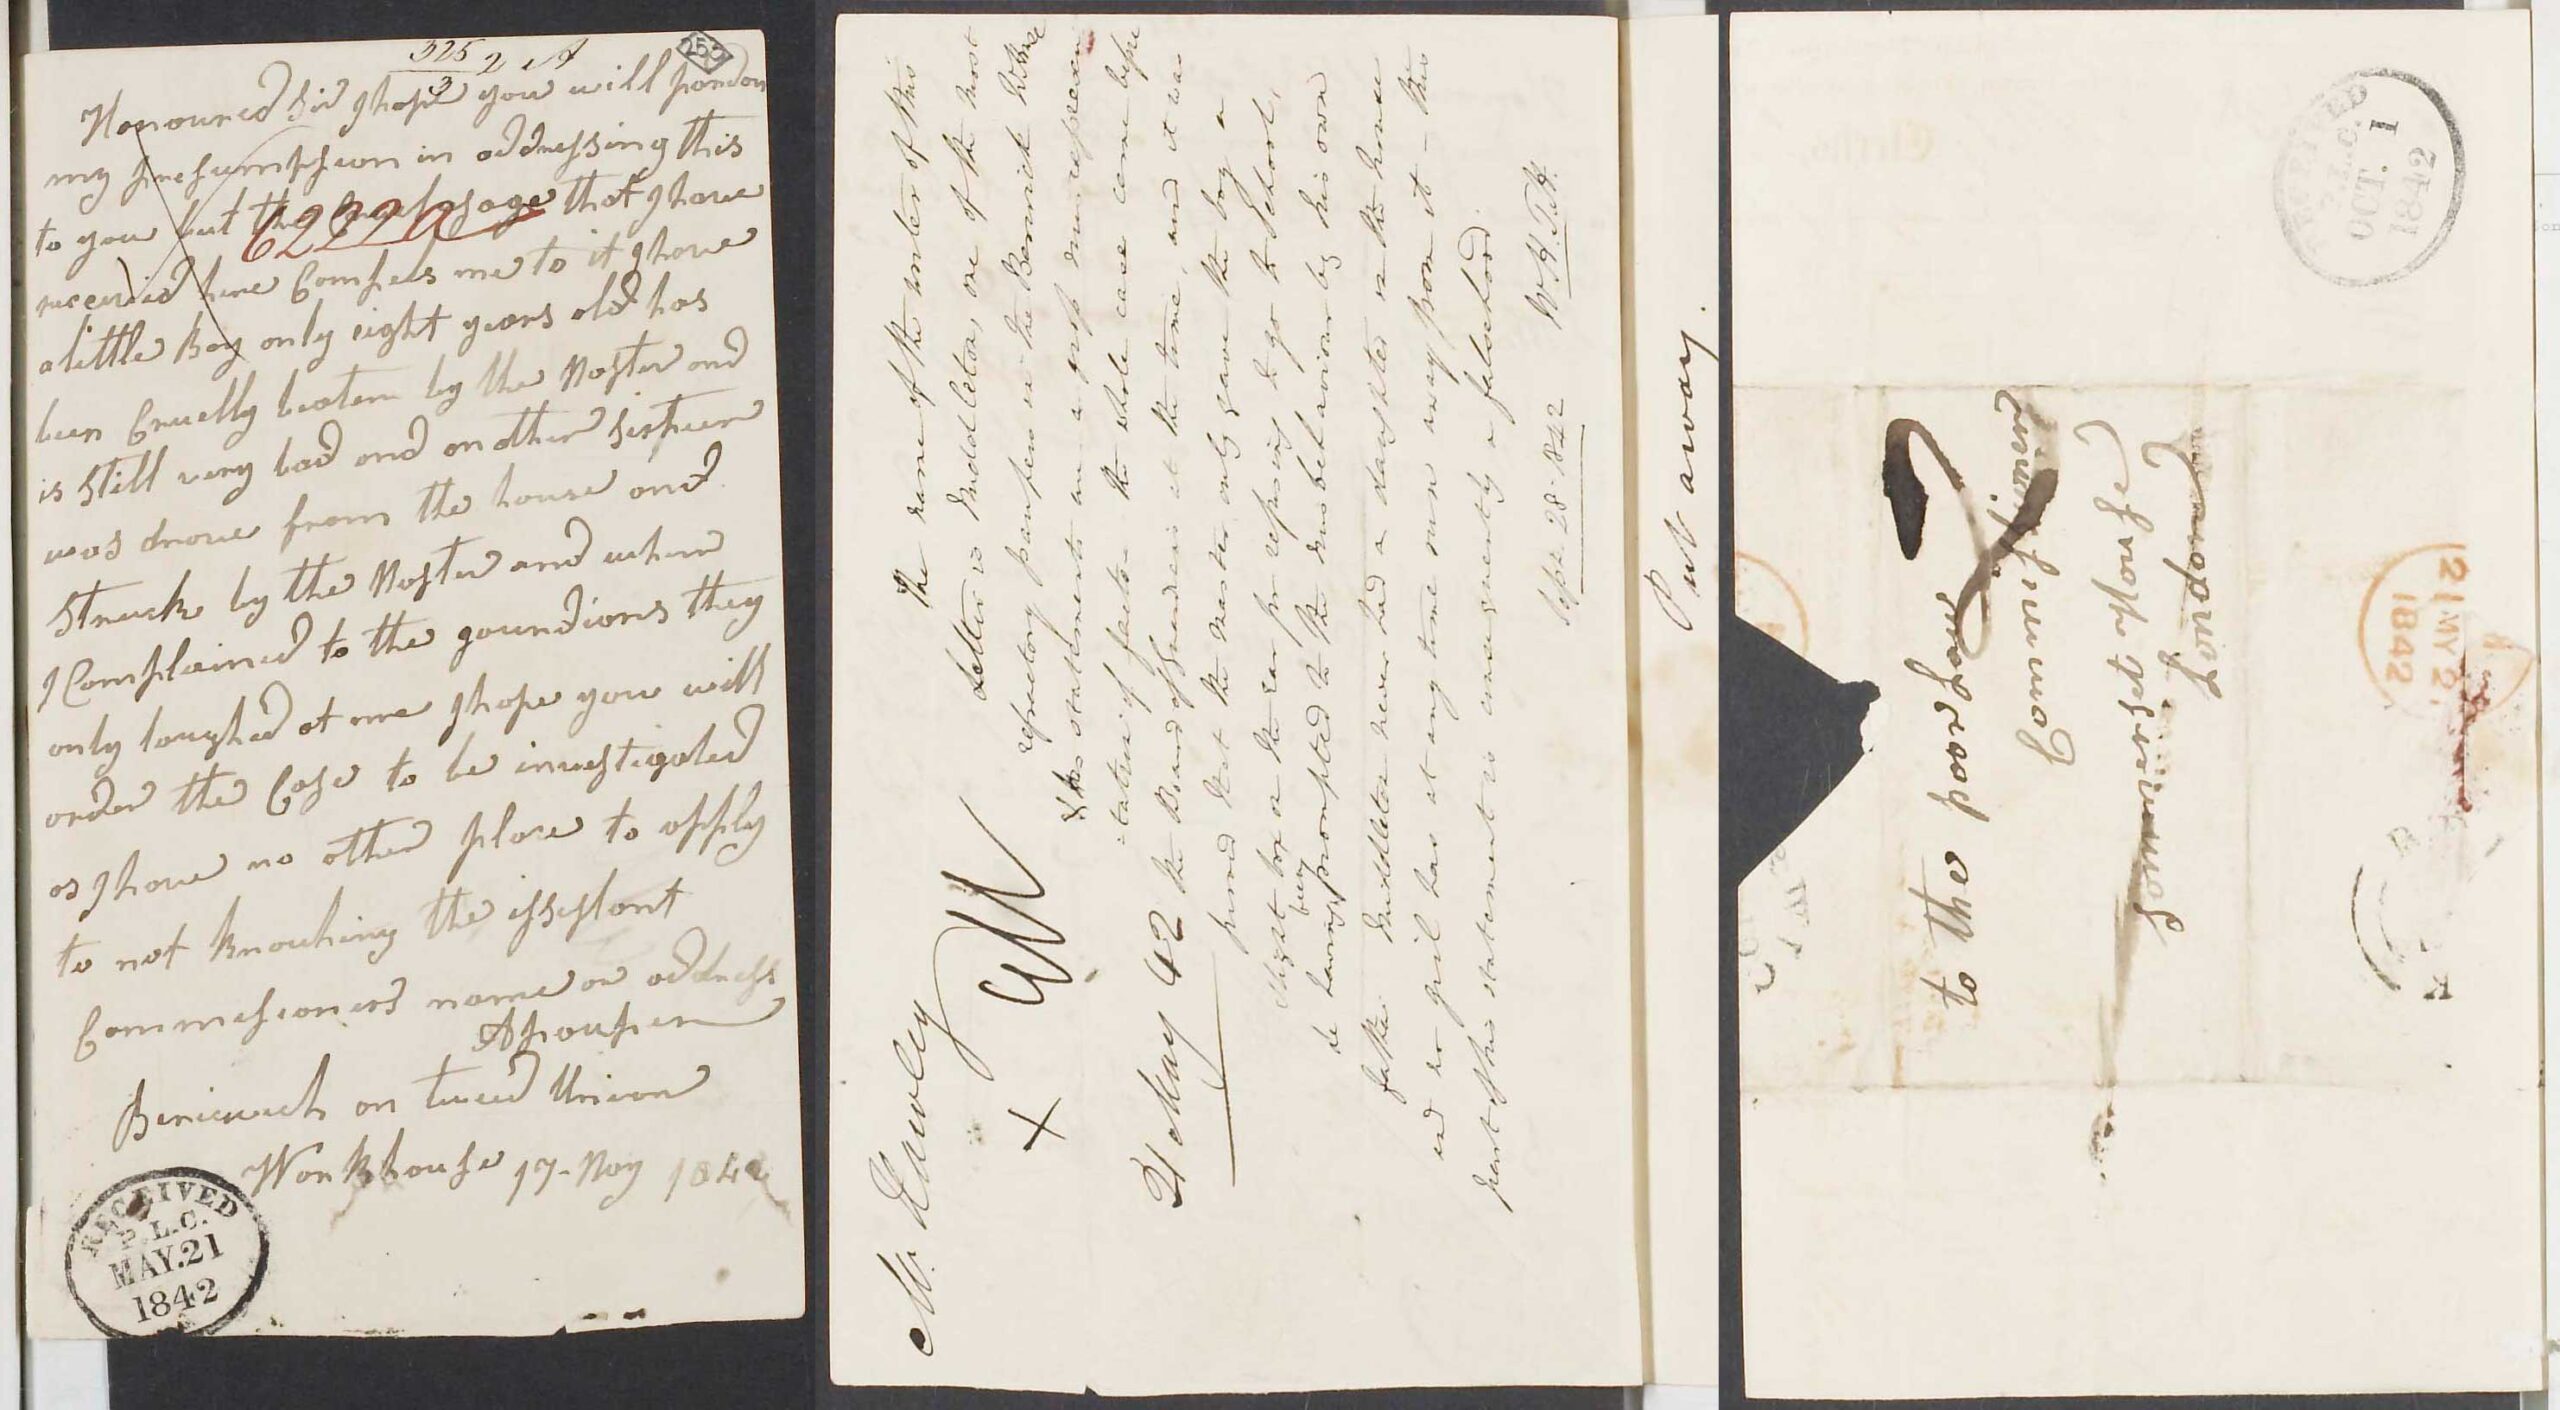 325
3
2 A
252
Honoured Sir I hope you will pardon
my presumpsion in addressing this
to you but the usage that I have
6222 A
received here Compels me to it I have
a little Boy only eight years old has
been Cruelly beaten by the Master and
is still very bad and another sixteen
was drove from the house and
struck by the Master and when
I Complained to the gaurdians they
only laughed at me I hope you will
order the Case to be investigated
as I have no other place to apply
to not knowhing the assistant
Commesioners name or address
A pauper
Berwick on tweed Union
Workhouse 17 May 1842
RECEIVED
P.L.C.
MAY.21
1842
Mr. Hawley
X
21 May 42
The name of the writer of this
Letter is Middleton, one of the most
refractory paupers in the Berwick W House
& his statements are a gross misrepresen
-tation of facts - the whole case came before
the Board of Guardians at the time, and it was
proved that the master only gave the boy a
slight box on the ear for refusing to go to School,
he having been prompted to the misbehaviour by his own
father. Middleton never had a daughter in the house
and no girl has at any time run away from it - this
part of his statement is consequently a falsehood.
Sept. 28. 1842 W.H.T.H.
Put away.
P.L.C.
OCT. 1
1842
to the poor Law
Commissioners
Sommerset House
London
21 MY 21
1842